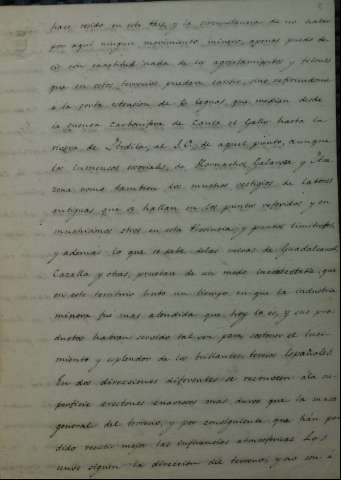 hace resido en este Pais, y la circunstancia de no haber
por aqui ningun movimiento minero, apenas puedo de-
cir con exactitud nada de los agrotamientos y filones
que en estos terrenos puedan existir, sino refiriendome
á la corta estension de 6 leguas que median desde
la cuenca carbonifera de Canta el Gallo hasta la
al S.E. de aquel punto, aunque
los inmensos escoriales de Hornachos, Galaroza y
como tambien los muchos vestigios de labores
antiguas que se hallan en los puntos referidos y en
muchisimos otros en esta Provincia y puntos limitrofes,
y ademas lo que se sabe delas minas de Guadalcanal,
Cazalla y otras, prueban de un modo incontestable que
en este territorio hubo un tiempo en que la industria
minera fue mas atendida que hoy lo es, y sus pro-
ductos habran servido tal vez para sostener el luci-
miento y esplendor de los brillantes tercios Españoles.
En dos direcciones diferentes se reconocen ála su-
perficie crestones enormes mas duros que la masa
general del terreno, y por consiguiente que hán po-
dido resistir mejor las influencias atmosfericas. Los
unos siguen la direccion del terreno, y no son á